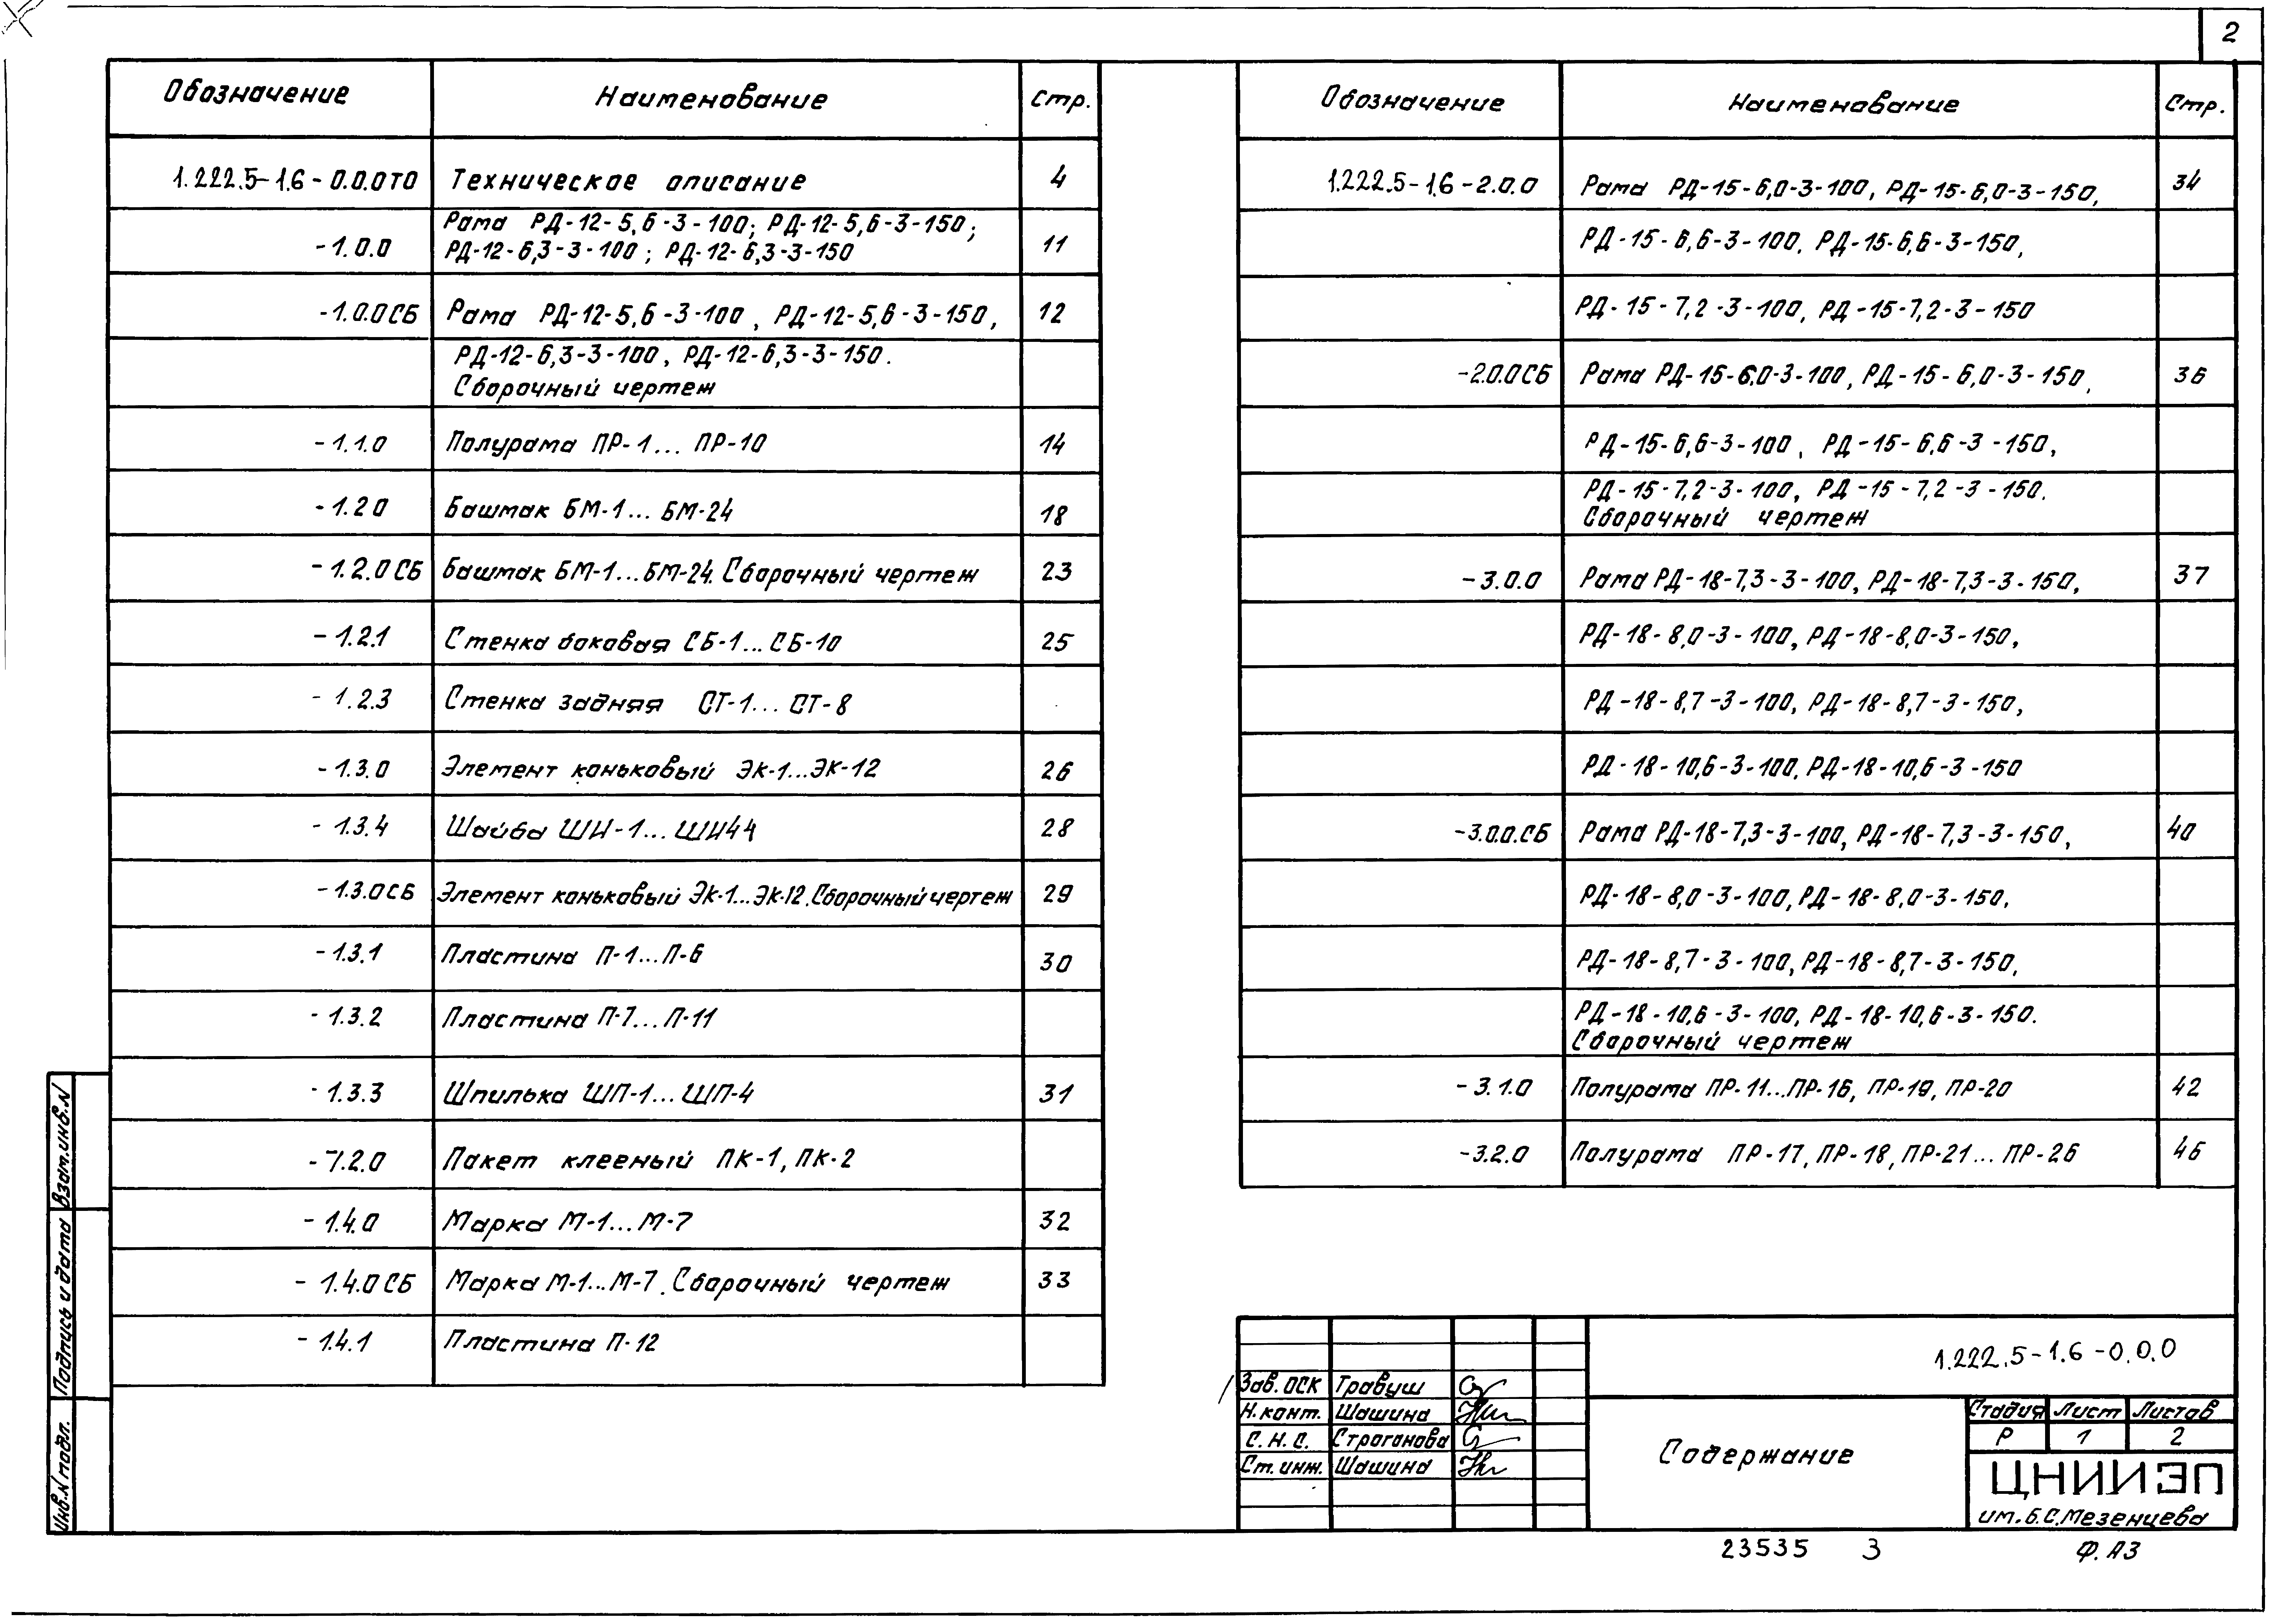 2
Обозначение Наименование Стр.
1.222.5-1.6-0.0.0ТО Техническое описание 4
-1.0.0 Рама РД-12-5,6-3-100; РД-12-5,6-3-150; 11
РД-12-6,3-3-100; РД-12-6,3-3-150
-1.0.0СБ Рама РД-12-5,6-3-100, РД-12-5,6-3-150, 12
РД-12-6,3-3-100, РД-12-6,3-3-150.
Сборочный чертеж
-1.1.0 Полурама ПР-1... ПР-10 14
-1.2.0 Башмак БМ-1... БМ-24 18
-1.2.0СБ Башмак БМ-1...БМ-24. Сборочный чертеж 23
-1.2.1 Стенка боковая СБ-1...СБ-10 25
-1.2.3 Стенка задняя СТ-1... СТ-8
-1.3.0 Элемент коньковый ЭК-1...ЭК-12 26
-1.3.4 Шайба ШИ-1... ШИ44 28
-1.3.0СБ Элемент коньковый ЭК-1...ЭК-12. Сборочный чертеж 29
-1.3.1 Пластина П-1...П-6 30
-1.3.2 Пластина П-7...П-11
-1.3.3 Шпилька ШП-1... ШП-4 31
-7.2.0 Пакет клееный ПК-1, ПК-2
-1.4.0 Марка М-1...М-7 32
-1.4.0СБ Марка М-1...М-7. Сборочный чертеж 33
-1.4.1 Пластина П-12
Обозначение Наименование Стр.
1.222.5-1.6-2.0.0 Рама РД-15-6,0-3-100, РД-15-6,0-3-150, 34
РД-15-6,6-3-100, РД-15-6,6-3-150,
РД-15-7,2-3-100, РД-15-7,2-3-150
-2.0.0СБ Рама РД-15-6,0-3-100, РД-15-6,0-3-150, 36
РД-15-6,6-3-100, РД-15-6,6-3-150,
РД-15-7,2-3-100, РД-15-7,2-3-150.
Сборочный чертеж
-3.0.0 Рама РД-18-7,3-3-100, РД-18-7,3-3-150, 37
РД-18-8,0-3-100, РД-18-8,0-3-150,
РД-18-8,7-3-100, РД-18-8,7-3-150,
РД-18-10,6-3-100, РД-18-10,6-3-150
-3.0.0.СБ Рама РД-18-7,3-3-100, РД-18-7,3-3-150, 40
РД-18-8,0-3-100, РД-18-8,0-3-150,
РД-18-8,7-3-100, РД-18-8,7-3-150,
РД-18-10,6-3-100, РД-18-10,6-3-150.
Сборочный чертеж
-3.1.0 Полурама ПР-11...ПР-16, ПР-19, ПР-20 42
-3.2.0 Полурама ПР-17, ПР-18, ПР-21... ПР-26 46
Взам.инв.N
Подпись и дата
Инв.N подл.
1.222.5-1.6-0.0.0
Зав. ОСК Травуш
Н. конт. Шашина
С. Н. С. Строганова
Ст. инж. Шашина
Содержание
Стадия Лист Листов
Р 1 2
ЦНИИЭП
им. Б.С.Мезенцева
23535 3 Ф. А3